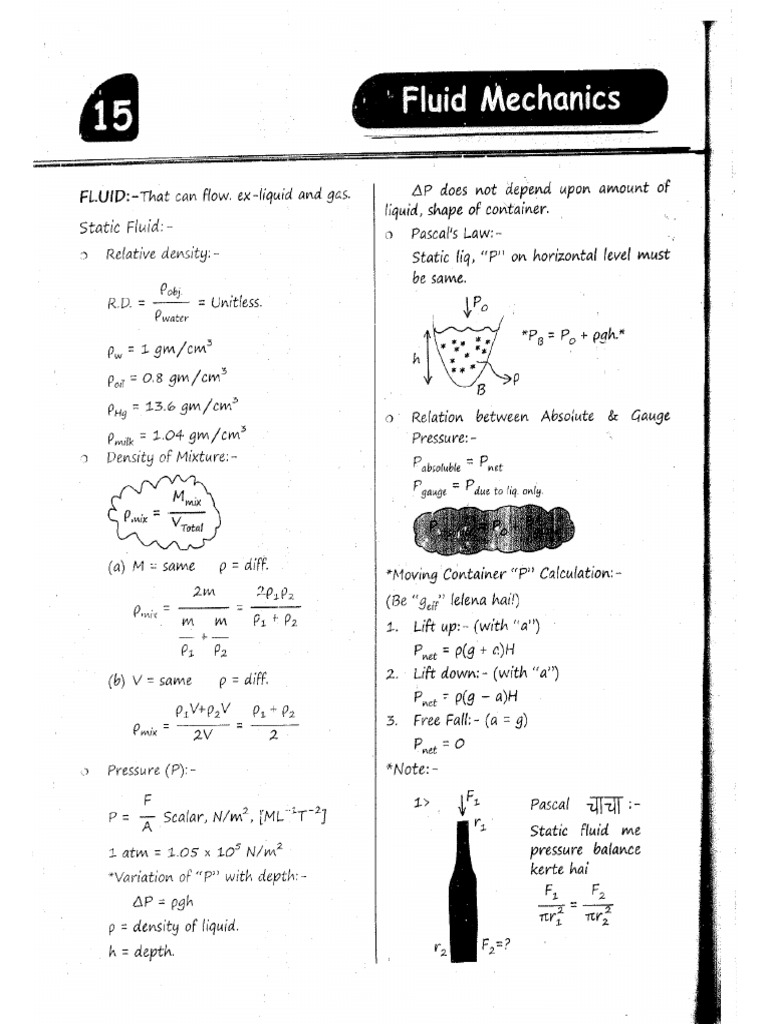 15
Fluid Mechanics
FLUID:-That can flow. ex-liquid and gas.
Static Fluid:-
Relative density:-
R.D. = ρobj. / ρwater = Unitless.
ρw = 1 gm/cm³
ρoil = 0.8 gm/cm³
ρHg = 13.6 gm/cm³
ρmilk = 1.04 gm/cm³
Density of Mixture:-
ρmix = Mmix / VTotal
(a) M = same ρ = diff.
ρmix = 2m / (m/ρ1 + m/ρ2) = 2ρ1ρ2 / (ρ1 + ρ2)
(b) V = same ρ = diff.
ρmix = (ρ1V+ρ2V) / 2V = (ρ1 + ρ2) / 2
Pressure (P):-
P = F/A Scalar, N/m², [ML⁻¹T⁻²]
1 atm = 1.05 x 10⁵ N/m²
*Variation of "P" with depth:-
ΔP = ρgh
ρ = density of liquid.
h = depth.
ΔP does not depend upon amount of
liquid, shape of container.
Pascal's Law:-
Static liq, "P" on horizontal level must
be same.
P0
*PB = P0 + ρgh.*
h
ρ
B
Relation between Absolute & Gauge
Pressure:-
Pabsoluble = Pnet
Pgauge = Pdue to liq. only.
P0
*Moving Container "P" Calculation:-
(Be "geff" lelena hai!)
1. Lift up:- (with "a")
Pnet = ρ(g + a)H
2. Lift down:- (with "a")
Pnet = ρ(g – a)H
3. Free Fall:- (a = g)
Pnet = 0
*Note:-
1>
F1
r1
r2
F2=?
Pascal चाचा :-
Static fluid me
pressure balance
kerte hai
F1 / πr1² = F2 / πr2²